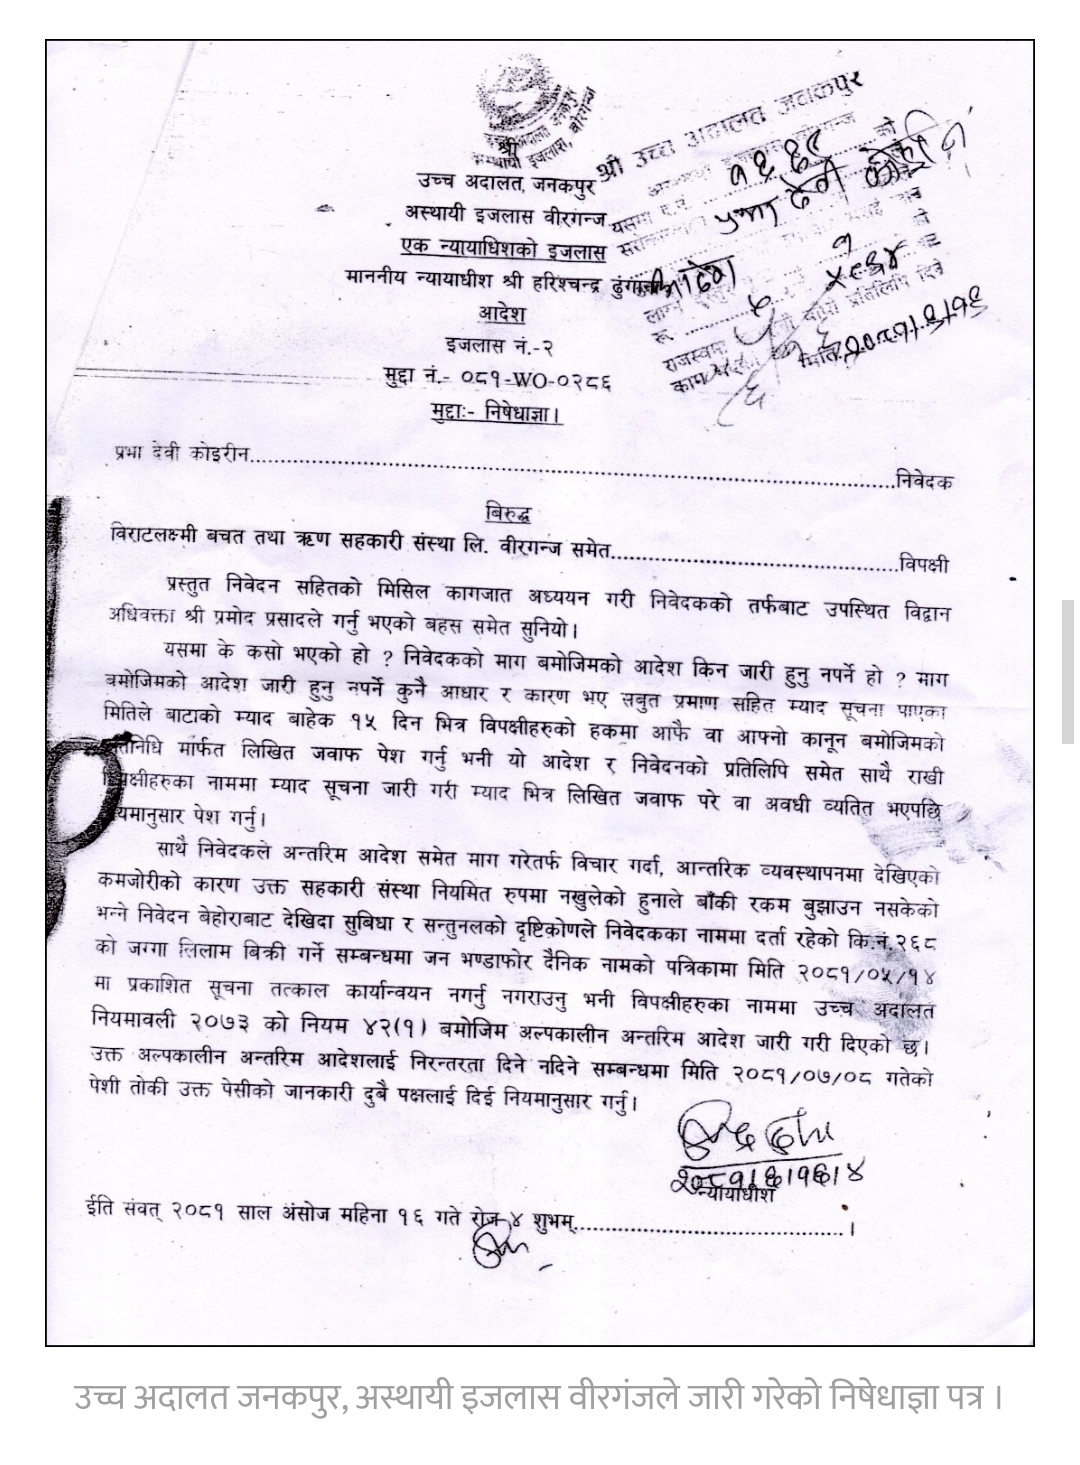 श्री
उच्च अदालत, जनकपुर
अस्थायी इजलास वीरगन्ज
एक न्यायाधिशको इजलास
माननीय न्यायाधीश श्री हरिश्चन्द्र
आदेश
इजलास नं.-२
मुद्दा नं.- ०८१-WO-०२८६
मुद्दाः- निषेधाज्ञा।
श्री उच्च अदालत जनकपुर
प्रभा देवी कोइरीन
आदेश
प्रभा देवी कोइरीन....................निवेदक
बिरुद्ध
विराटलक्ष्मी बचत तथा ऋण सहकारी संस्था लि. वीरगन्ज समेत....................विपक्षी
प्रस्तुत निवेदन सहितको मिसिल कागजात अध्ययन गरी निवेदकको तर्फबाट उपस्थित विद्वान
अधिवक्ता श्री प्रमोद प्रसादले गर्नु भएको बहस समेत सुनियो।
यसमा के कसो भएको हो ? निवेदकको माग बमोजिमको आदेश किन जारी हुनु नपर्ने हो ? माग
बमोजिमको आदेश जारी हुनु नपर्ने कुनै आधार र कारण भए सबुत प्रमाण सहित म्याद सूचना पाएका
मितिले बाटाको म्याद बाहेक १५ दिन भित्र विपक्षीहरुको हकमा आफै वा आफ्नो कानून बमोजिमको
मार्फत लिखित जवाफ पेश गर्नु भनी यो आदेश र निवेदनको प्रतिलिपि समेत साथै राखी
नाममा म्याद सूचना जारी गरी म्याद भित्र लिखित जवाफ परे वा अवधी व्यतित भएपछि
पेश गर्नु।
साथै निवेदकले अन्तरिम आदेश समेत माग गरेतर्फ विचार गर्दा, आन्तरिक व्यवस्थापनमा देखिएको
कमजोरीको कारण उक्त सहकारी संस्था नियमित रुपमा नखुलेको हुनाले बाँकी रकम बुझाउन नसकेको
भन्ने निवेदन बेहोराबाट देखिदा सुबिधा र सन्तुनलको दृष्टिकोणले निवेदकका नाममा दर्ता रहेको कि.नं.२६८
को जग्गा लिलाम बिक्री गर्ने सम्बन्धमा जन भण्डाफोर दैनिक नामको पत्रिकामा मिति २०८१/०५/१४
मा प्रकाशित सूचना तत्काल कार्यान्वयन नगर्नु नगराउनु भनी विपक्षीहरुका नाममा उच्च अदालत
नियमावली २०७३ को नियम ४२(१) बमोजिम अल्पकालीन अन्तरिम आदेश जारी गरी दिएको छ।
उक्त अल्पकालीन अन्तरिम आदेशलाई निरन्तरता दिने नदिने सम्बन्धमा मिति २०८१/०७/०८ गतेको
पेशी तोकी उक्त पेसीको जानकारी दुबै पक्षलाई दिई नियमानुसार गर्नु।
२०८१।६।१६।४
न्यायाधीश
ईति संवत् २०८१ साल अंसोज महिना १६ गते रोज ४ शुभम्....................।
उच्च अदालत जनकपुर, अस्थायी इजलास वीरगंजले जारी गरेको निषेधाज्ञा पत्र ।